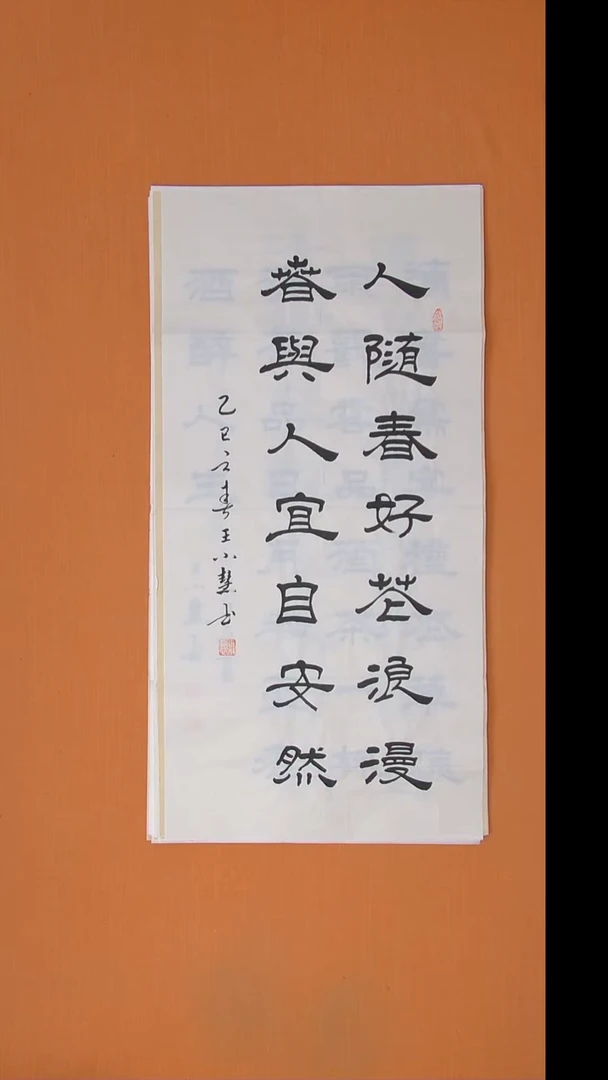 人随春好花浪漫
春與人宜自安然
乙巳立春王小慧书